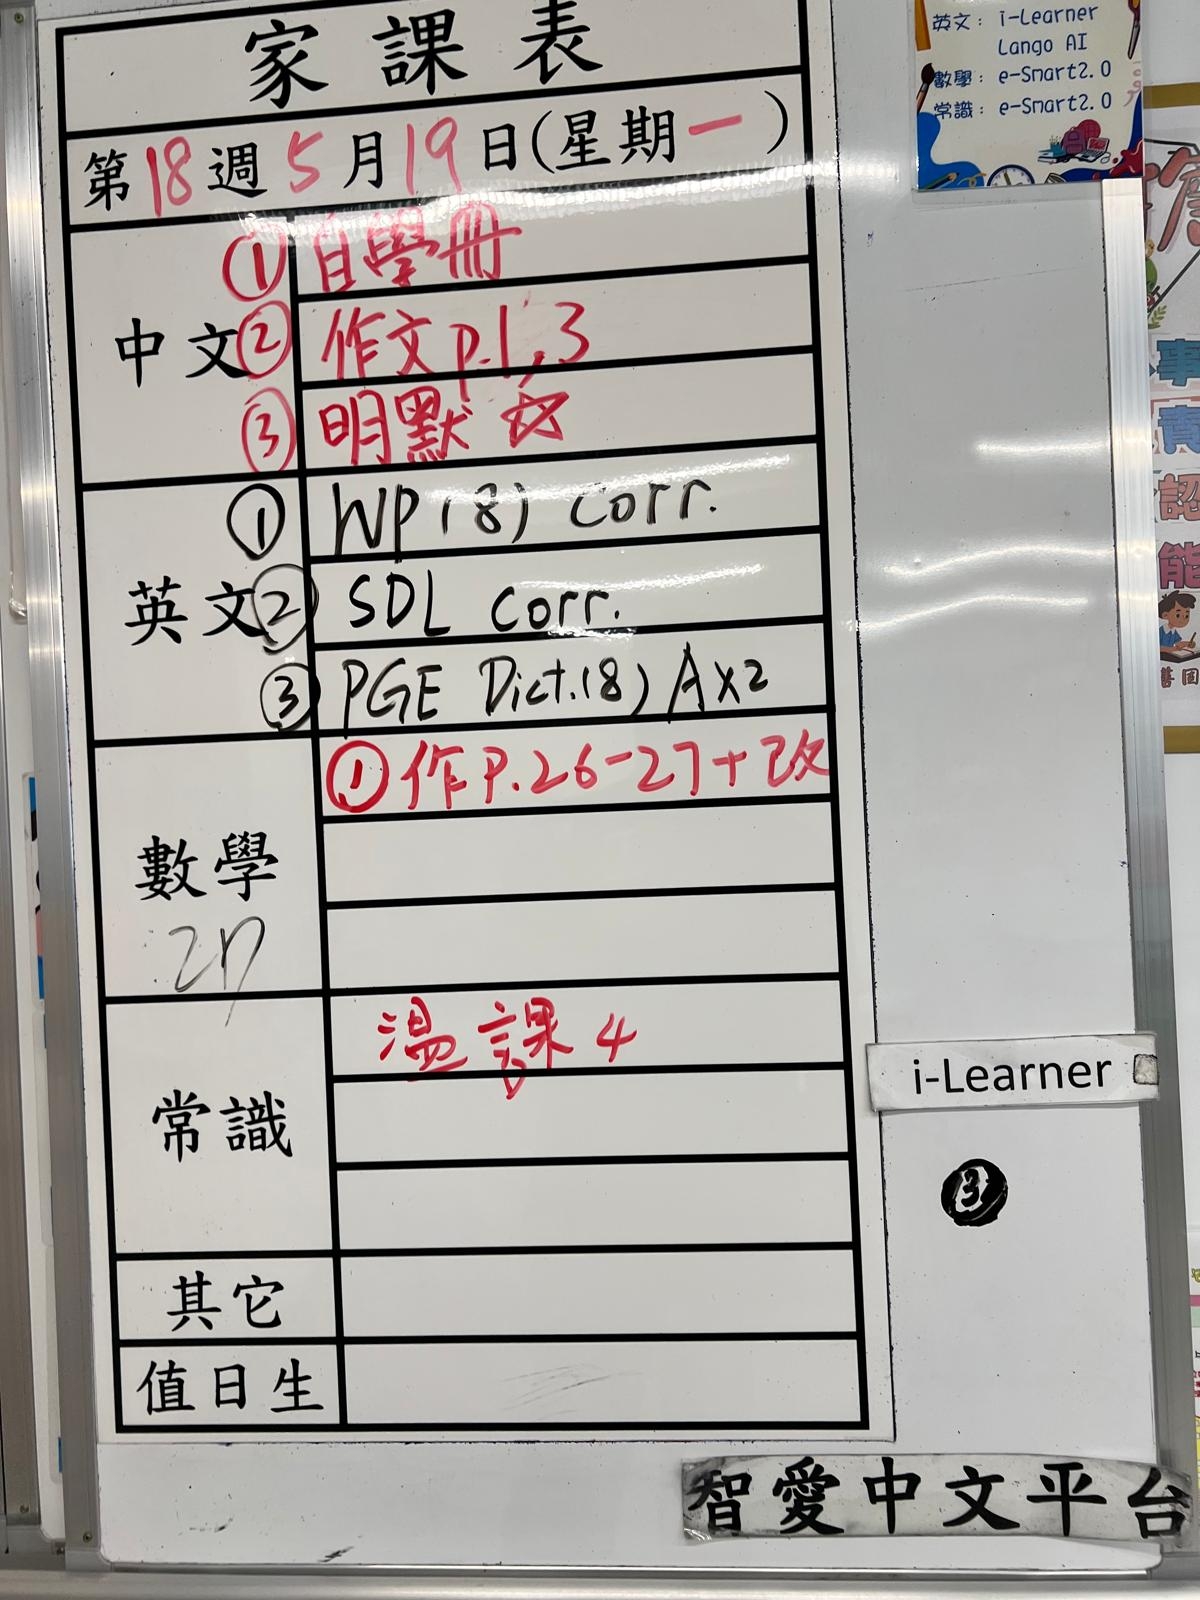 家課表
第18週5月19日(星期一)
中文
① 自學冊
② 作文p.1,3
③ 明默 ☆
英文
① WP(8) corr.
② SDL corr.
③ PGE Dict.(8) A×2
數學
① 作P.26-27+改
常識
溫課4
其它
值日生
英文: i-Learner
Lango AI
數學: e-Smart2.0
常識: e-Smart2.0
i-Learner
3
智愛中文平台
事
責
認
能